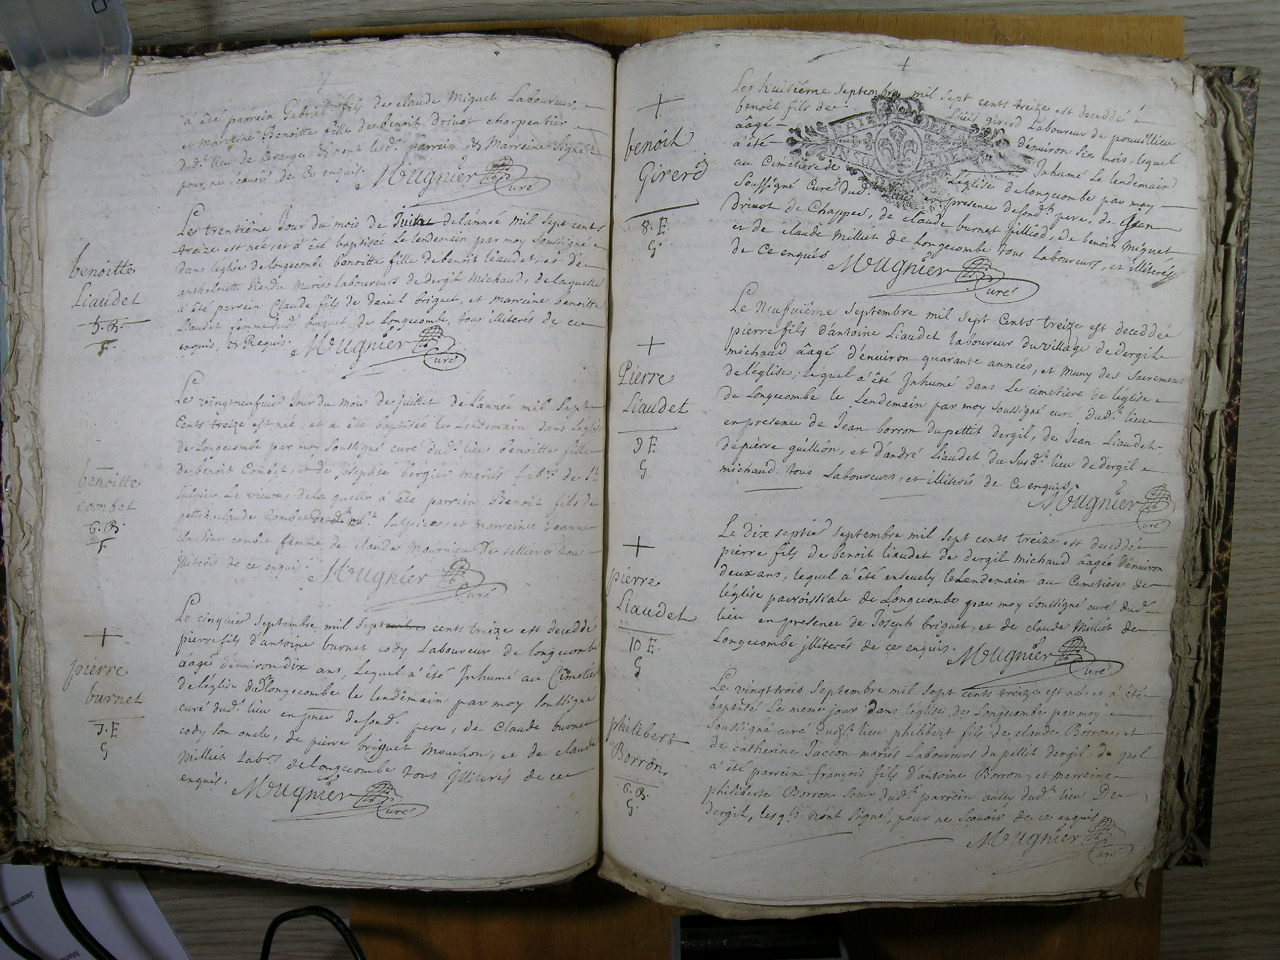 a été parrein Gabriel fils de claude Miguet Laboureur,
et marreine Benoitte fille de benoit Drivet charpentier
pour ne scavoir de ce enquis. Mugnier
curé
Le trentième Jour du mois de Juin de l'année mil sept cents
treize est née et a été baptisée le lendemain par moy soussigné
dans leglise de longecombe benoitte fille de benoit liaudet, et d'
mariés laboureurs de dergit michaud, de laquelle
a été parrein Claude fils de daniel briguet, et marreine benoitte
Liaudet femme dud. briguet, de Longecombe, tous illiterés de ce
enquis, et Requis. Mugnier
curé
benoitte
Liaudet
5. B.
Le vingtneufvie Jour du mois de juillet de l'année mil sept
Cents treize est née, et a été baptisée le lendemain dans leglise
de Longecombe par moy soussigné curé dud. lieu benoitte fille
de benoit Combet, et de Josephte mariés Lab.rs de St
Sulpice Le vieux, de la quelle a été parrein Benoit fils de
Claude Combet Sulpice, et marreine jeanne
claudine combet femme de claude
illiterés de ce enquis. Mugnier
curé
benoitte
combet
6. B.
Le cinquie septembre mil sept cents treize est deceddé
pierre fils d'antoine burnet cody Laboureur de longecombe
aâgé d'environ dix ans, Lequel a été Inhumé au Cimetiere
de leglise dud. longecombe le lendemain par moy soussigné
curé dud. lieu en pnce de sond. pere, de Claude burnet
cody son oncle, de pierre briguet mouchon, et de claude
Milliet Labrs de longecombe tous illiterés de ce
enquis. Mugnier
curé
+
pierre
burnet
7. E
G
+
Le huitième septembre mil sept cents treize est deceddé
benoit fils de Louis girerd Laboureur de pouvillieu
aâgé d'environ six mois, lequel
a été Inhumé le lendemain
au Cimetiere de Léglise de longecombe par moy
soussigné Curé dud. lieu en presence de sond. pere, de Jean
Drivet de Chappes, de claude burnet filliod, de benoit Miguet
et de claude Milliet de Longecombe tous Laboureurs, et illiterés
de ce enquis Mugnier
curé
+
benoit
Girerd
8. E.
G.
Le Neufvième septembre mil sept Cents treize est deceddé
pierre fils d'antoine Liaudet laboureur du village de dergit
michaud aâgé d'environ quarante années, et muny des sacremens
de leglise, lequel a été Inhumé dans Le cimetière de léglise
de Longecombe le Lendemain par moy soussigné curé dud. lieu
en presence de Jean borron du pettit dergil, de Jean Liaudet
de pierre guillion, et d'andré Liaudet du susd. lieu de dergil
michaud tous Laboureurs, et illiterés de Ce enquis.
Mugnier
curé
+
Pierre
Liaudet
9 E
G
Le dix septie septembre mil sept cents treize est deceddé
pierre fils de benoit liaudet de dergil michaud aâgé d'environ
deux ans, lequel a été ensevely le lendemain au Cimetière de
léglise parroissiale de Longecombe par moy soussigné curé dud.
lieu en presence de Joseph briguet, et de claude Milliet de
Longecombe illiterés de ce enquis. Mugnier
curé
+
pierre
Liaudet
10 E.
G
Le vingttrois septembre mil sept cents treize est né, et a été
baptisé le meme jour dans leglise de Longecombe par moy
soussigné curé dudt. lieu philibert fils de claude Borron, et
de catherine Jaccon mariés Laboureurs du pettit dergil duquel
a été parrein françois fils d'antoine Borron, et marreine
philiberte Borron soeur dud. parrein aussy dud. lieu De
dergil, lesqls n'ont signé, pour ne scavoir de ce enquis
Mugnier
curé
philibert
Borron.
6. B.
G.